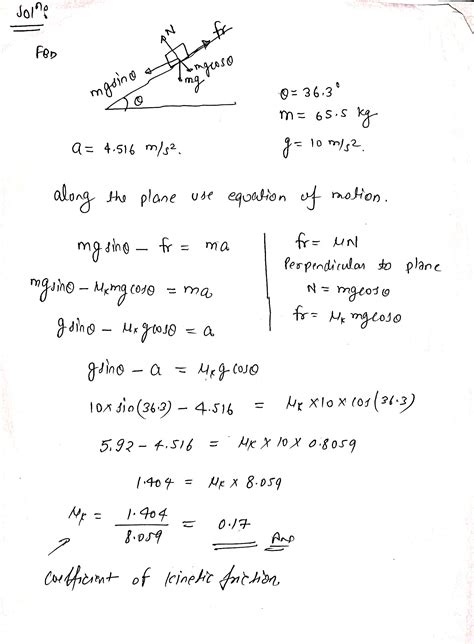 Solⁿ:
FBD
N
fr
mg sinθ
mg cosθ
mg
θ
θ = 36.3°
m = 65.5 kg
a = 4.516 m/s².
g = 10 m/s².
along the plane use equation of motion.
mg sinθ − fr = ma
fr = μN
Perpendicular to plane
mg sinθ − μₖ mg cosθ = ma
N = mg cosθ
g sinθ − μₖ g cosθ = a
fr = μₖ mg cosθ
g sinθ − a = μₖ g cosθ
10 × sin(36.3) − 4.516 = μₖ × 10 × cos(36.3)
5.92 − 4.516 = μₖ × 10 × 0.8059
1.404 = μₖ × 8.059
μₖ = 1.404 / 8.059 = 0.17 Ans
coefficient of kinetic friction